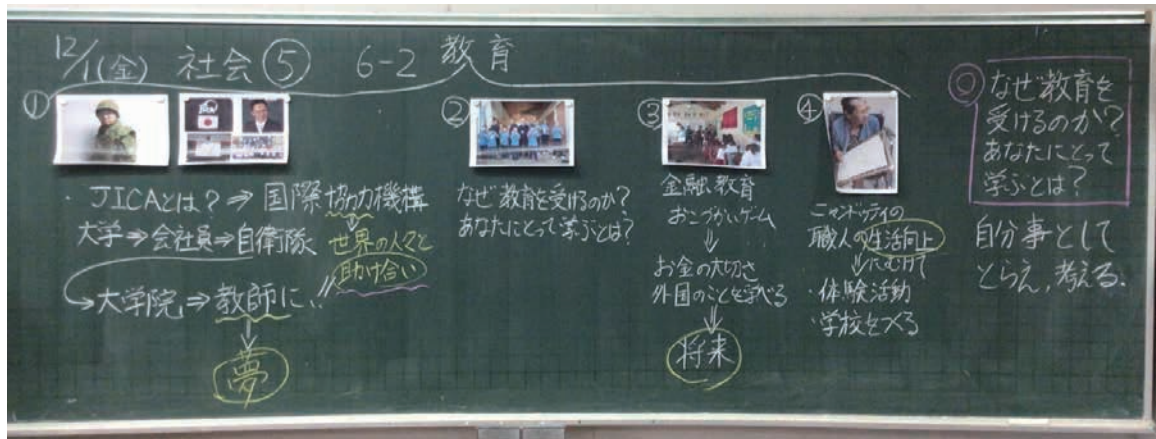 12/1(金) 社会 ⑤ 6-2 教育
①
・JICAとは？⇒国際協力機構
大学⇒会社員⇒自衛隊
世界の人々と
助け合い
大学院⇒教師に
夢
②
なぜ教育を受けるのか？
あなたにとって学ぶとは？
③
金融教育
おこづかいゲーム
お金の大切さ
外国のことを学べる
将来
④
ニャンドゥティの
職人の生活向上
にむけて
・体験活動
・学校をつくる
◎なぜ教育を
受けるのか？
あなたにとって
学ぶとは？
自分事として
とらえ、考える.